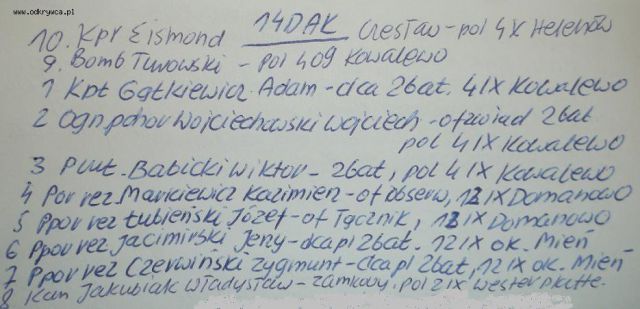 www.odkrywca.pl
14DAK
10. Kpr Eismond Czesław - pol 4X Helenów
9. Bomb Turowski - pol 4 09 Kowalewo
1 Kpt Gątkiewicz Adam - dca 2bat. 4 IX Kowalewo
2 Ogn.pchor Wojciechowski Wojciech - ofzwiad 2bat
pol 4 IX Kowalewo
3 Plut. Babicki Wiktor - 2bat, pol 4 IX Kowalewo
4 Por rez Markiewicz Kazimierz - of obserw, IX Domanowo
5 Ppor rez Łubieński Józef - of Tącznik, IX Domanowo
6 Ppor rez Jacimirski Jerzy - dca pl 2bat. 12 IX ok. Mień
7 Ppor rez Czerwiński Zygmunt - dca pl 2bat, 12 IX ok. Mień
8 Kan Jakubiak Władysław - zamkowy, pol 2 IX Westerplatte.